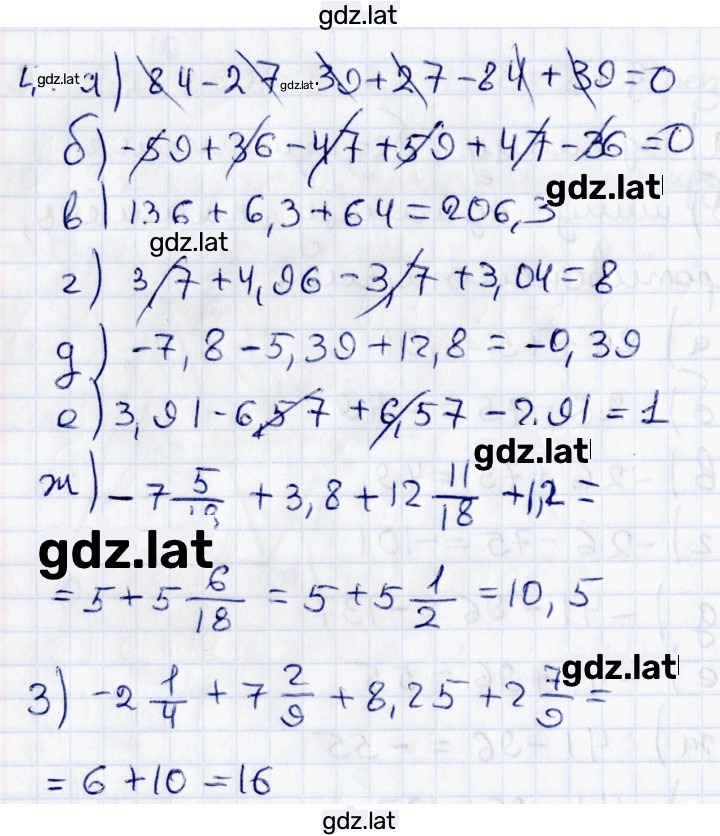 gdz.lat
4. gdz.lat а) 84 - 27 - gdz.lat 39 + 27 - 84 + 39 = 0
б) -59 + 36 - 47 + 59 + 47 - 36 = 0
gdz.lat
в) 136 + 6,3 + 64 = 206,3
gdz.lat
г) 3/7 + 4,96 - 3,7 + 3,04 = 8
д) -7,8 - 5,39 + 12,8 = -0,39
е) 3,91 - 6,57 + 6,57 - 2.91 = 1
gdz.lat
ж) -7 5/18 + 3,8 + 12 11/18 + 1,2 =
gdz.lat
= 5 + 5 6/18 = 5 + 5 1/2 = 10,5
gdz.lat
з) -2 1/4 + 7 2/9 + 8,25 + 2 7/9 =
= 6 + 10 = 16
gdz.lat